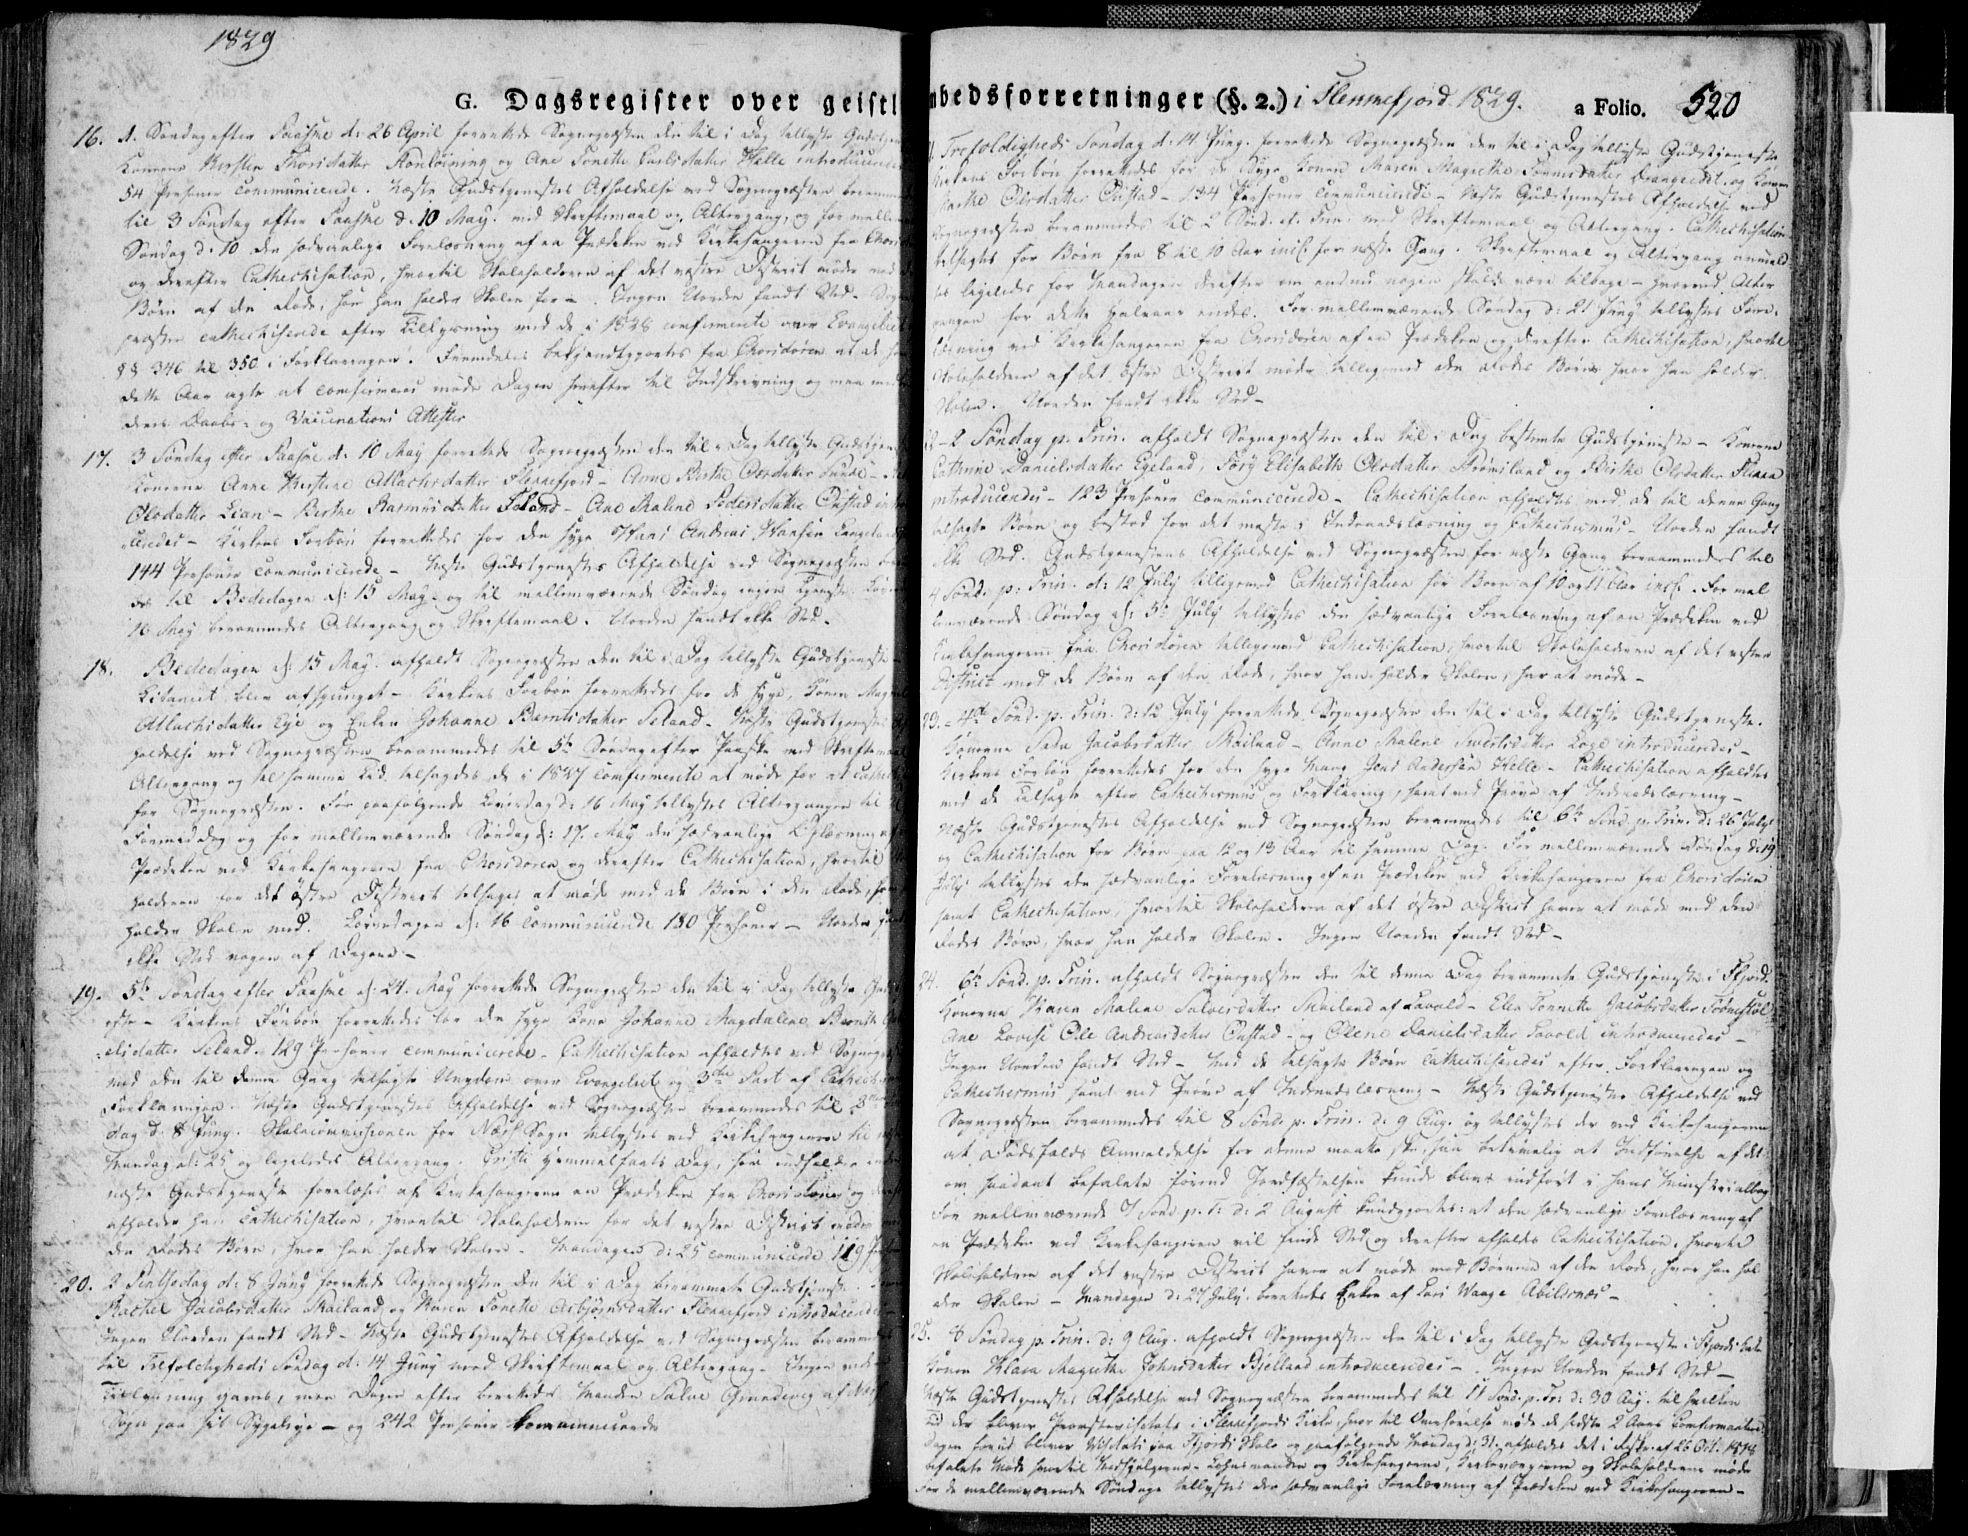 1829
G. Dagsregister over geistl
16. 1. Søndag efter Paaske d: 26 April forrettede Sognepræsten den til i Dag tellyste Gudstjen
Konerne Kirsten Thorsdatter og Ane Tonette Carlsdatter Helle introducer
54 Personer communicerede. Næste Gudstjenestes Afholdelse ved Sognepræsten berammed
til 3 Søndag efter Paaske d. 10 May. med Skriftemaal og Altergang, og for mellem
Søndag d: 10 den sædvanlige Forelæsning af en Prædiken ved Kirkesangeren fra Chors
og derefter Cathechisation, hvortil Skoleholderen af det vestre District møder med
Børn af den Rode, hvor han holder Skolen for -. Ingen Uorden fandt Sted - Sogne
præsten cathechiserede efter Tillysning med de i 1828 confirmerte over Evangeliet
§§ 346 til 350 i Forklaringen. Fremdeles bekjendtgjortes fra Chorsdøren at de
dette Aar agte at confirmeres møde Dagen herefter til Indskrivning og maa med
deres Daabs- og Vaccinations Attester
17. 3 Søndag efter Paaske d: 10 May forrettede Sognepræsten den til i Dag tellyste Gudstjen
Konerne Anne Kirstine Atlachsdatter Flekkefjord - Anne Berthe Olsdatter
Olsdatter Lian - Berthe Seland - Ane Malene Pedersdatter intro
ceredes - Kirkens Forbøn forrettedes for den syge Hans Andreas Hansen
144 Personer communicerede - Næste Gudstjenestes Afholdelse ved Sognepræsten be
des til Bededagen d: 15 May - og til mellemværende Søndag ingen Tjeneste. Løver
16 May berammedes Altergang og Skriftemaal. Uorden fandt ikke Sted.
18. Bededagen d: 15 May. afholdt Sognepræsten den til i Dag tellyste Gudstjeneste
Litaniet blev afsjunget - Kirkens Forbøn forrettedes for de syge, Konen
Atlachsdatter Eye og Enken Johanne Berntsdatter Seland. Næste Gudstjenestes
holdelse ved Sognepræsten berammedes til 5te Søndag efter Paaske med Skriftemaal
Altergang og til samme Tid tilsagdes de i 1827 confirmerte at møde for at cathe
for Sognepræsten. For paafølgende Løverdag d: 16 May tellystes Altergangen til
Formiddag og for mellemværende Søndag d: 17. May den sædvanlige Oplæsning af
Prædiken ved Kirkesangeren fra Chorsdøren og derefter Cathechisation, hvortil
holderen for det østre District tilsiges at møde med de Børn i den Rode, hvor
holder Skolen med. Løverdagen d: 16 communicerede 180 Personer - Uorden fandt
ikke Sted nogen af Dagene -
19. 5te Søndag efter Paaske d: 24. May forrettede Sognepræsten den til i Dag tellyste Gudst
este - Kirkens Forbøn forrettedes for den syge Kone Johanne Magdalene Bernt
elsdatter Seland - 129 Personer communicerede - Cathechisation afholdtes ved Sognepr
med den til denne Gang tilsagte Ungdom over Evangeliet og 3die Part af Cathech
Forklaringen. Næste Gudstjenestes Afholdelse ved Sognepræsten berammedes til
dag d: 8 Juny. Skolecommissionen for Næss Sogn tellystes ved Kirkesangeren til
Mandag d: 25 og ligeledes Altergang. Christi Himmelfarts Dag,
næste Gudstjeneste forelæses af Kirkesangeren en Prædiken fra Chorsdøren og
afholder han Cathechisation, hvortil Skoleholderen for det vestre District møder
den Rodes Børn, hvor han holder Skolen. Mandagen d: 25 communicerede 119 P
20. 2 Pintsedag d: 8 Juny forrettede Sognepræsten den til i Dag berammete Gudstjeneste.
Rachel Jacobsdatter Mailand og Maren Tonette Asbjørnsdatter Flekkefjord introducered
Ingen Uorden fandt Sted - Næste Gudstjenestes Afholdelse ved Sognepræsten berammed
til Trefoldigheds Søndag d: 14 Juny med Skriftemaal og Altergang. Ingen
Tillysning havdes, men Dagen efter berettedes Manden Salve af Næss
Sogn paa sit Sygeleje - og 242 Personer kommunicerede
mbedsforretninger (§. 2.) i Flekkefjord 1829. a Folio. 520
Trefoldigheds Søndag d: 14 Juny. forrettede Sognepræsten den til i Dag tellyste Gudstjeneste
Kirkens Forbøn forrettedes for de syge Konen Maren Magrethe Tønnesdatter og Konen
Olsdatter - 134 Personer communicerede - Næste Gudstjenestes Afholdelse ved
Sognepræsten berammedes til 2 Sønd. p. Trin. med Skriftemaal og Altergang. Cathechisation
tilsagdes for Børn fra 8 til 10 Aar incl. for næste Gang. Skriftemaal og Altergang anmeld
tes ligeledes for Mandagen derefter om endnu nogen skulde være tilbage - hvormed Alter
gangen for dette Halvaar endes. For mellemværende Søndag d: 21 Juny tellystes Fore-
læsning ved Kirkesangeren fra Chorsdøren af en Prædiken og derefter Cathechisation, hvortil
Skoleholderen af det østre District møder tilligemed den Rodes Børn hvor han holder
Skolen. Uorden fandt ikke Sted -
22 - 2 Søndag p. Trin. afholdt Sognepræsten den til i Dag bestemte Gudstjeneste - Konerne
Cathrine Danielsdatter Egeland, Siry Elisabeth Olsdatter og Birthe Olsdatter
introduceredes - 123 Personer communicerede - Cathechisation afholdtes med de til denne Gang
tilsagte Børn og bestod for det meste i Indenadslæsning og Cathechismus - Uorden fandt
ikke Sted. Gudstjenestens Afholdelse ved Sognepræsten for næste Gang berammedes til
4 Sønd. p. Trin. d: 12 July tilligemed Cathechisation for Børn af 10 og 11 Aar incl. For mel
lemværende Søndag d: 5te July tellystes den sædvanlige Forelæsning af en Prædiken ved
Kirkesangeren fra Chorsdøren tilligemed Cathechisation, hvortil Skoleholderen af det vestre
District med de Børn af den Rode, hvor han holder Skolen, har at møde -
23. - 4de Sønd. p. Trin. d: 12 July forrettede Sognepræsten den til i Dag tellyste Gudstjeneste.
Konerne Sara Jacobsdatter Mailand - Anne Malene Loge introduceredes -
Kirkens Forbøn forrettedes for den syge Mand Jens Andersen Helle - Cathechisation afholdtes
med de tilsagte efter Cathechismus og Forklaring, samt ved Prøve af Indenadslæsning -
Næste Gudstjenestes Afholdelse ved Sognepræsten berammedes til 6te Sønd. p. Trin. d: 26 July
og Cathechisation for Børn paa 12 og 13 Aar til samme Dag. For mellemværende Søndag d: 19
July tellystes den sædvanlige Forelæsning af en Prædiken ved Kirkesangeren fra Chorsdøren
samt Cathechisation, hvortil Skoleholderen af det østre District haver at møde med den
Rodes Børn, hvor han holder Skolen. Ingen Uorden fandt Sted -
24. 6te Sønd. p. Trin. afholdt Sognepræsten den til denne Dag berammete Gudstjeneste i Fjord.
Konerne Karen Malene Salvesdatter Mailand af Lavold - Elen Tonnette Jacobsdatter
Ane Lovise Andreasdatter - og Olene Danielsdatter Lavold introduceredes -
Ingen Uorden fandt Sted - Med de tilsagte Børn Cathechiseredes efter Forklaringen og
Cathechismus samt ved Prøve af Indenadslæsning - Næste Gudstjenestes Afholdelse ved
Sognepræsten berammedes til 8 Sønd. p. Trin. d: 9 Aug. og tellystes der ved Kirkesangeren
at Dødsfalds Anmeldelse for denne maatte ske saa betimelig at Indførelse af det
om saadant befalete førend Jordfæstelsen kunde blive indført i hans Ministerialbog
For mellemværende 7 Sønd p. T: d: 2 August kundgjordes: at den sædvanlige Forelæsning af
en Prædiken ved Kirkesangeren vil finde Sted og derefter afholdes Cathechisation, hvortil
Skoleholderen af det vestre District haver at møde med Børnene af den Rode, hvor han hol
der Skolen - Mandagen d: 27 July. berettedes Enken af Lars Waage Abelsnæs -
25. 8 Søndag p. Trin. d: 9 Aug. afholdt Sognepræsten den til i Dag tellyste Gudstjeneste i Fjords
Konen Magrethe Johnsdatter Bjelland introduceredes - . Ingen Uorden fandt Sted -
Næste Gudstjenestes Afholdelse ved Sognepræsten berammedes til 11 Sønd. p. Tr: d: 30 Aug. til hvilken
Tid der bliver Provstevisitats i Flekkefjords Kirke, hvor til Overhørelse møde de sidste 2 Aars Confirmanter.
Dagen forud bliver Visitats paa Fjords Skole og paafølgende Mandag d: 31. afholdes det i Reskr. af 26 Oct. 1818
befalete Møde hvortil Medhjælperne - Lehnsmanden og Kirkesangerne, Kirkeværgerne og Skoleholderne møde
For de mellemværende Søndage tellystes den sædvanlige Forelæsning af Prædiken ved Kirkesangeren -